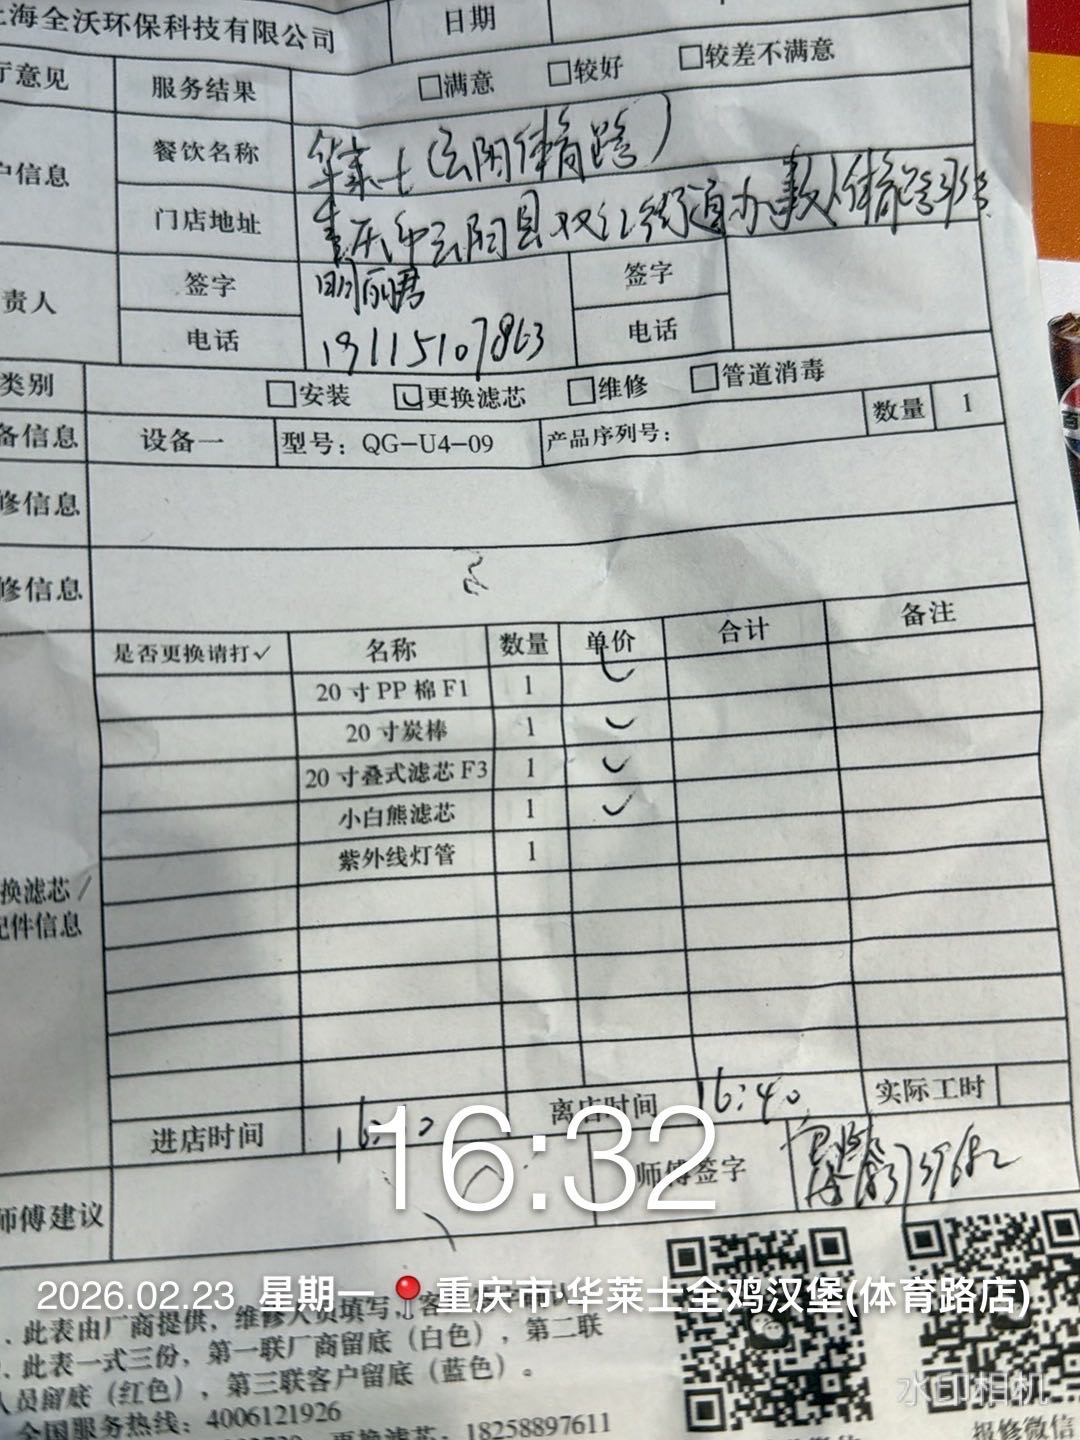 上海全沃环保科技有限公司 日期
厅意见 服务结果 □满意 □较好 □较差不满意
户信息 餐饮名称 华莱士(云阳体育路)
门店地址 重庆市云阳县双江街道办事处体育路
责人 签字 签字
电话 19115107863 电话
类别 □安装 ☑更换滤芯 □维修 □管道消毒
备信息 设备一 型号：QG-U4-09 产品序列号： 数量 1
修信息
修信息
是否更换请打✓ 名称 数量 单价 合计 备注
20寸PP棉F1 1 ✓
20寸炭棒 1 ✓
20寸叠式滤芯F3 1 ✓
小白熊滤芯 1 ✓
紫外线灯管 1
换滤芯/
配件信息
进店时间 离店时间 16:40 实际工时
16:32
师傅建议 师傅签字
2026.02.23 星期一 📍重庆市·华莱士全鸡汉堡(体育路店)
.此表由厂商提供，维修人员填写，客
.此表一式三份，第一联厂商留底（白色），第二联
人员留底（红色），第三联客户留底（蓝色）。
全国服务热线：4006121926
更换滤芯：18258897611
水印相机
报修微信